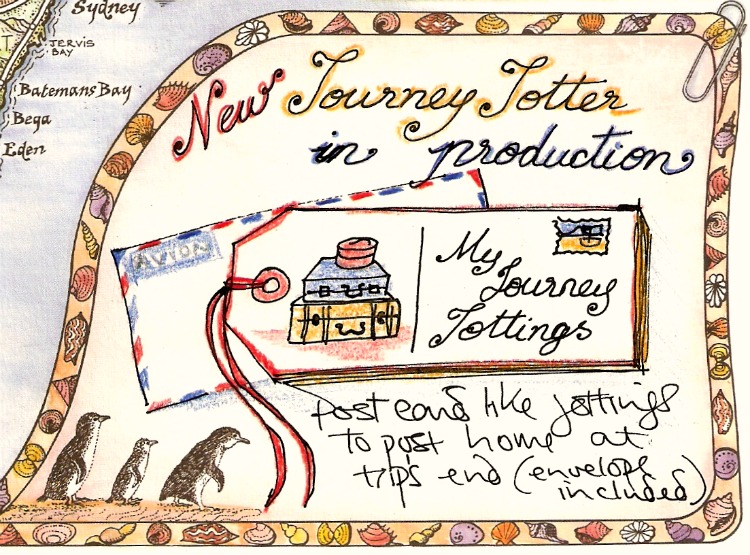 Sydney
JERVIS
BAY
Batemans Bay
Bega
Eden
New Journey Jotter
in production
AVION
My
Journey
Jottings
post card like jottings
to post home at
trips end (envelope
included)